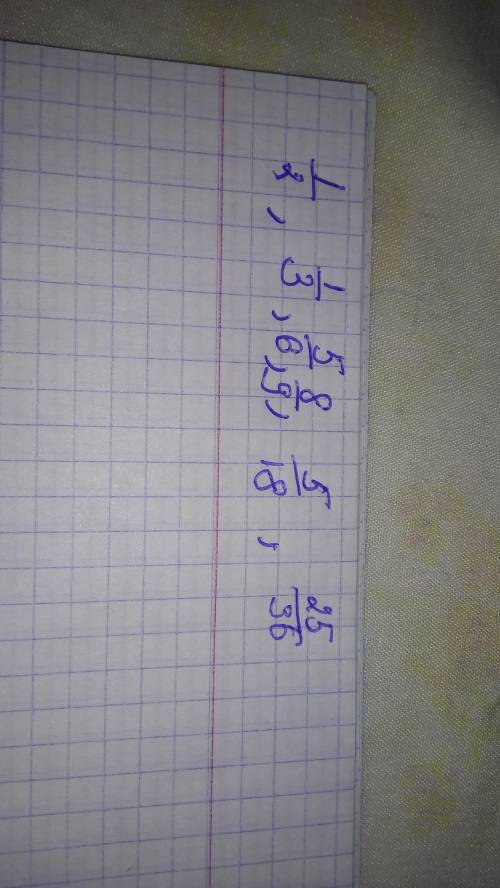 1/2, 1/3, 5/6, 8/9, 5/18, 25/36